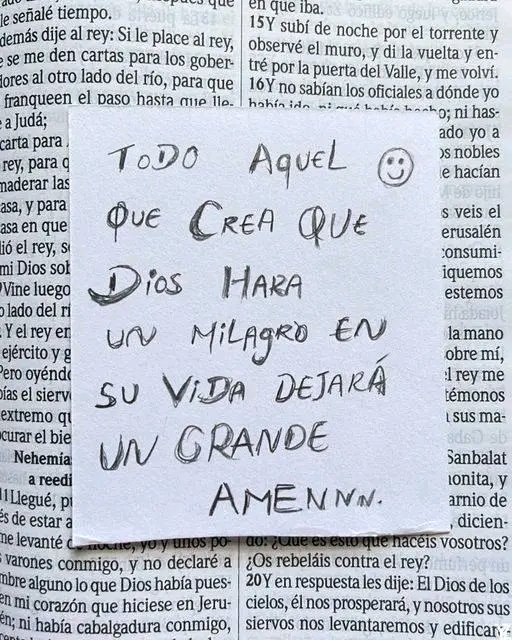 le señalé tiempo.
demás dije al rey: Si le place al rey,
se me den cartas para los gober-
dores al otro lado del río, para que
franqueen el paso hasta que lle-
a Judá;
carta para
rey, para q
maderar las
asa, y para
asa en que
dió el rey, s
mi Dios sob
9Vine luego
o lado del rí
Y el rey en
ejército y g
Pero oyéndo
bías el sierv
extremo qu
curar el bie
Nehemía
a reedi
11Llegué, p
és de estar a
me levanté de noche, yo y unos po-
varones conmigo, y no declaré a
mbre alguno lo que Dios había pues-
en mi corazón que hiciese en Jeru-
én; ni había cabalgadura conmigo,
en que iba.
15Y subí de noche por el torrente y
observé el muro, y di la vuelta y en-
tré por la puerta del Valle, y me volví.
16Y no sabían los oficiales a dónde yo
había ido, ni qué había hecho; ni has-
ado yo a
os nobles
e hacían
s veis el
erusalén
consumi-
iquemos
estemos
la mano
obre mí,
el rey me
témonos
sus ma-
Sanbalat
monita, y
arnio de
, dicien-
do: ¿Qué es esto que hacéis vosotros?
¿Os rebeláis contra el rey?
20Y en respuesta les dije: El Dios de los
cielos, él nos prosperará, y nosotros sus
siervos nos levantaremos y edificare-
TODO AQUEL
QUE CREA QUE
DIOS HARA
UN MILAGRO EN
SU VIDA DEJARÁ
UN GRANDE
AMENNN.